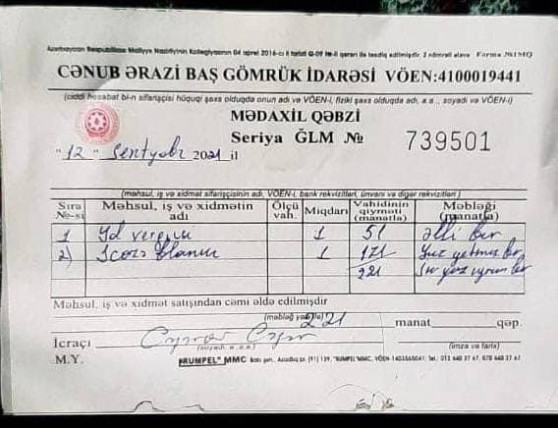 Azərbaycan Respublikası Maliyyə Nazirliyinin Kollegiyasının 04 aprel 2016-cı il tarixli Q-09 №-li qərarı ilə təsdiq edilmişdir. 2 nömrəli əlavə Forma №1MQ
CƏNUB ƏRAZİ BAŞ GÖMRÜK İDARƏSİ VÖEN:4100019441
(ciddi hesabat bl-n sifarişçisi hüquqi şəxs olduqda onun adı və VÖEN-i, fiziki şəxs olduqda adı, a.a., soyadı və VÖEN-i)
MƏDAXİL QƏBZİ
Seriya ĞLM № 739501
"12" Sentyabr 2021 il
(məhsul, iş və xidmət sifarişçisinin adı, VÖEN-i, bank rekvizitləri, ünvanı və digər rekvizitləri)
Sıra №-si Məhsul, iş və xidmətin adı Ölçü vah. Miqdarı Vahidinin qiyməti (manatla) Məbləği (manatla)
1 Yol vergisi 1 51 Əlli bir
2) İcazə blankı 1 171 Yüz yetmiş bir
221 İki yüz iyirmi bir
Məhsul, iş və xidmət satışından cəmi əldə edilmişdir
221 manat qəp.
İcraçı
(imza və tarix)
M.Y. "RUMPEL" MMC